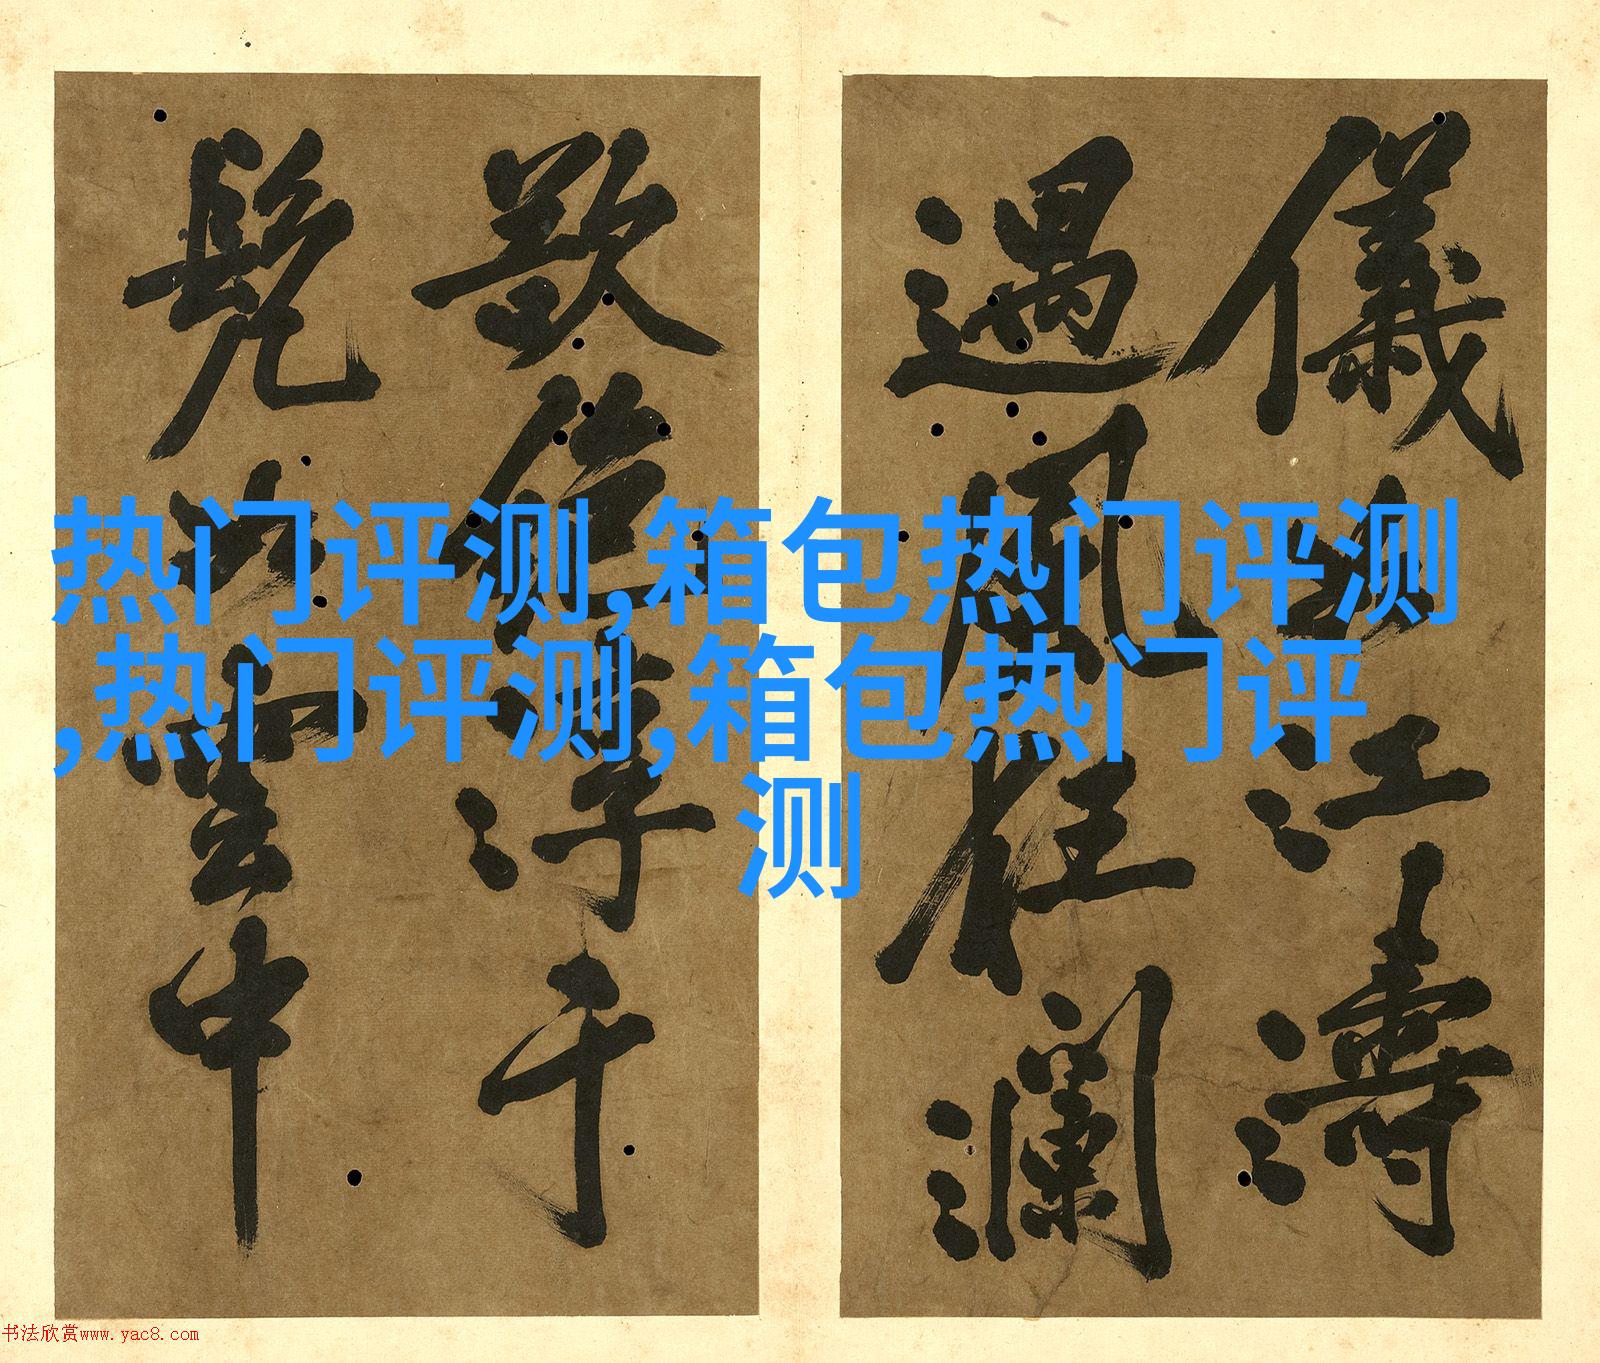 儀江濤
遇風狂瀾
浮于
雲中
热门评测,箱包热门评测
,热门评测,箱包热门评
测
书法欣赏www.yac8.com